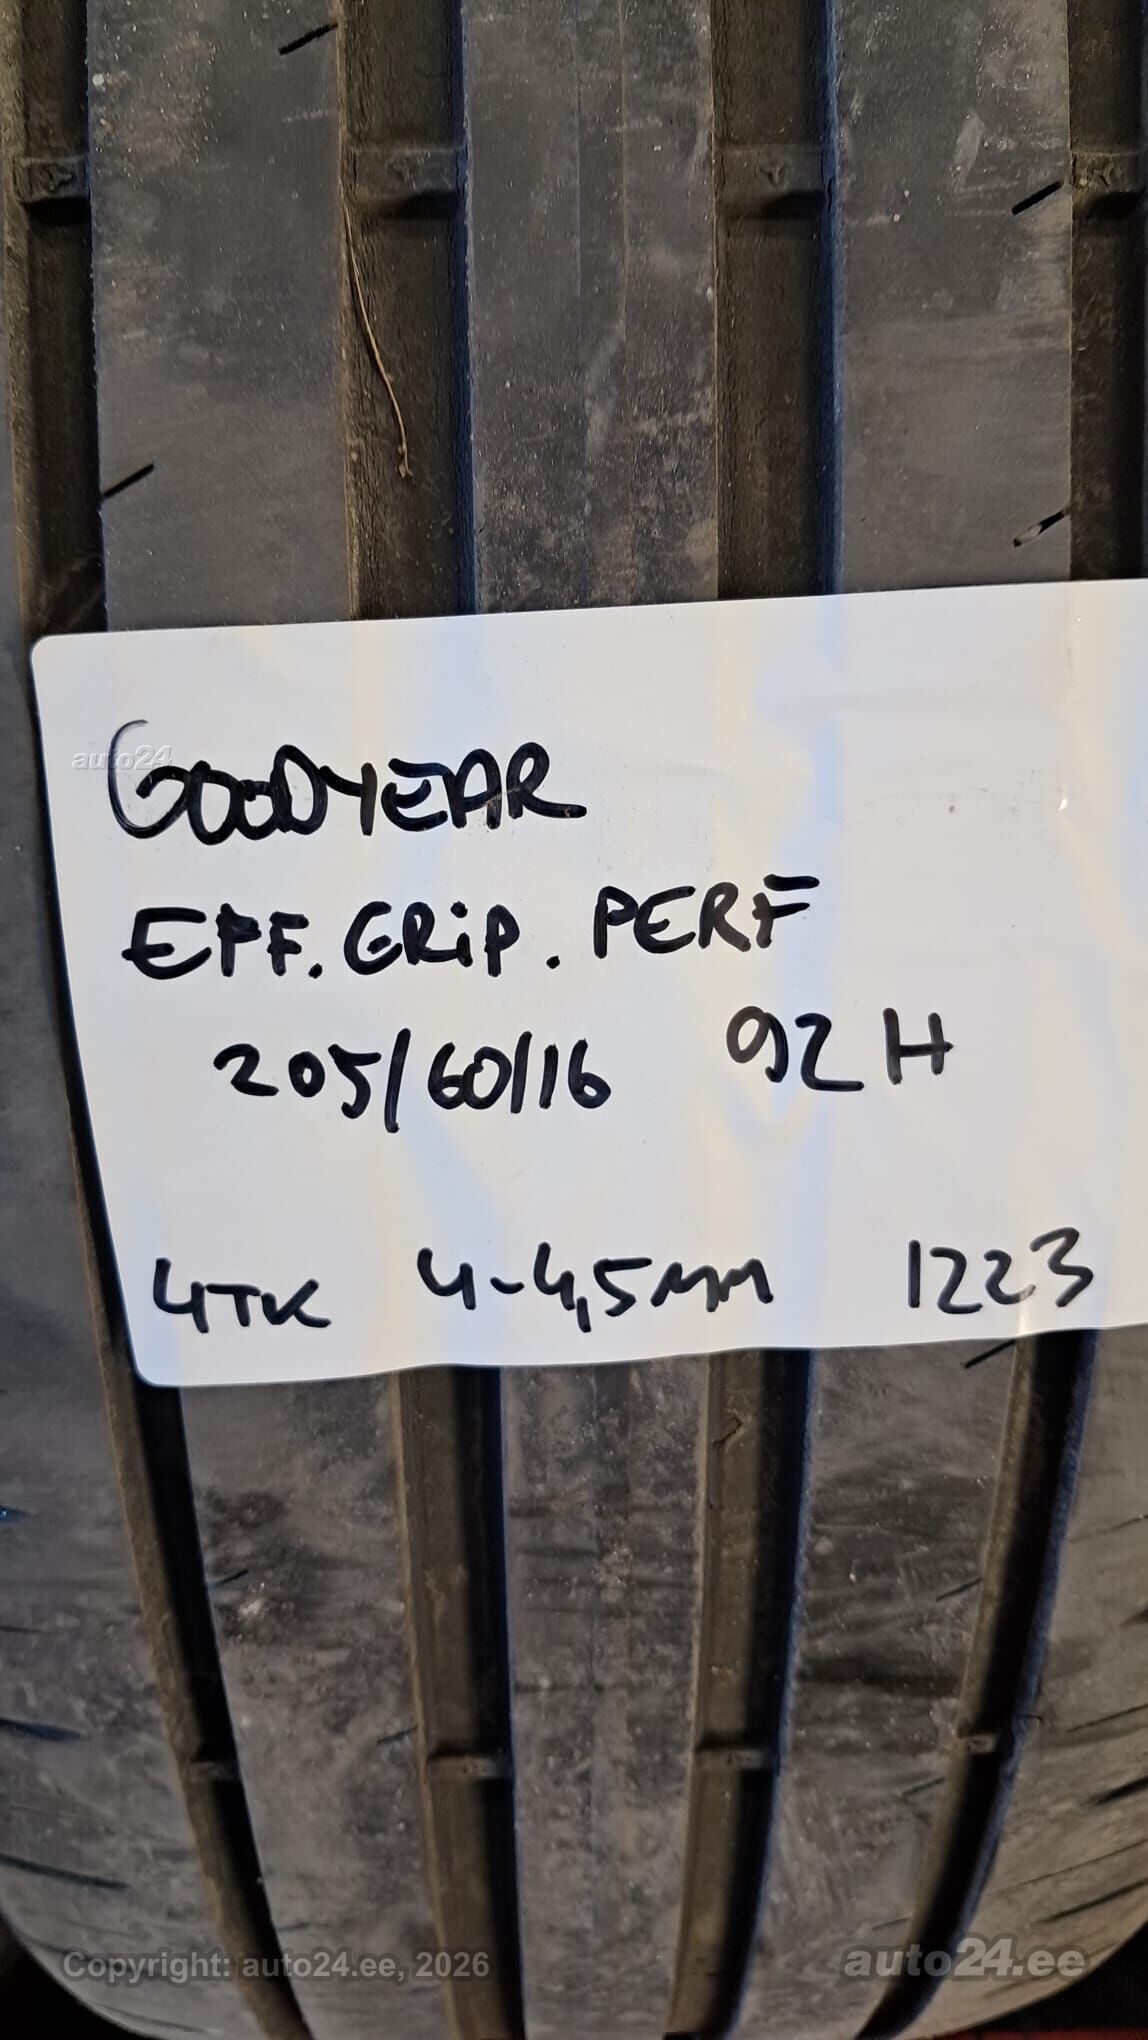 auto24
GOODYEAR
EFF. GRiP. PERF
205/60/16 92 H
4TK 4-4,5MM 1223
Copyright: auto24.ee, 2026
auto24.ee